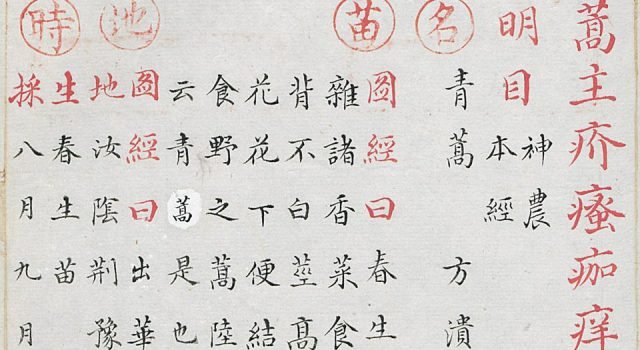 蒿主疥瘙痂痒
明目神農
本經
名青蒿方潰
苗圖經曰春生
雜諸香菜食
背不白莖高
花花下便結
食野之蒿陸
云青蒿是也
地圖經曰出華
地汝陰荆豫
時生春生苗
採八月九月